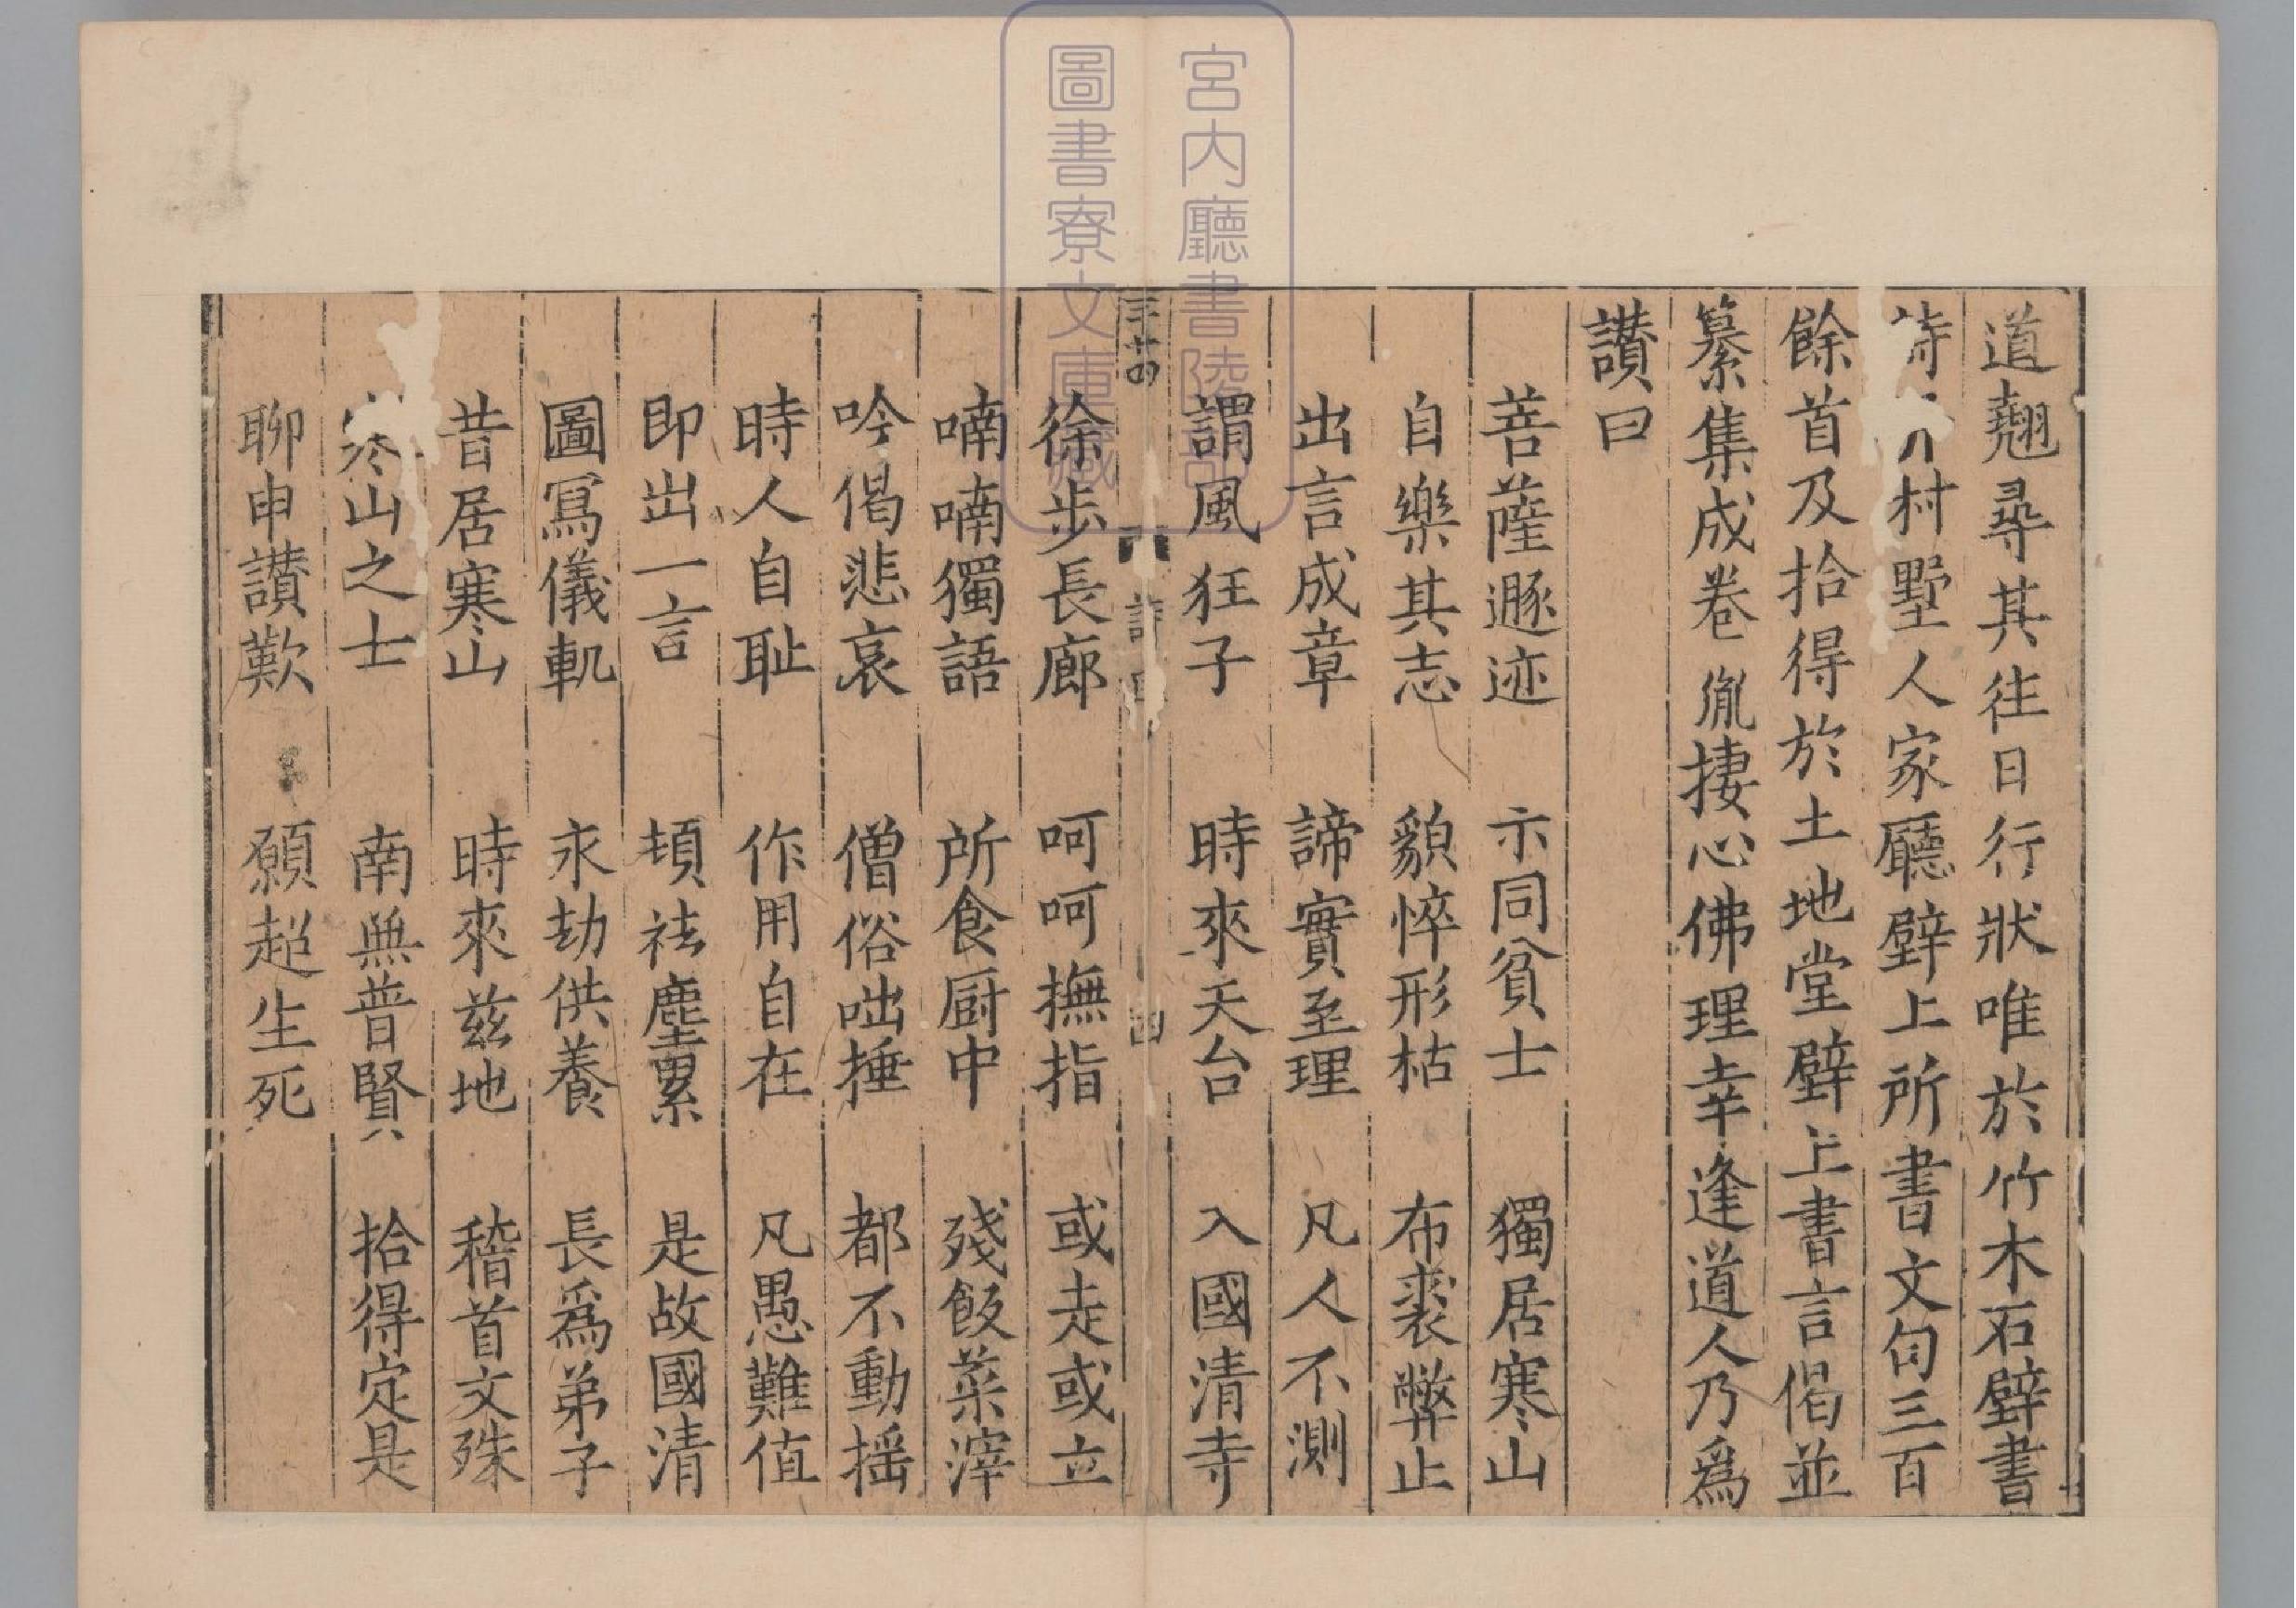 道翹尋其往日行狀唯於竹木石壁書
詩村墅人家廳壁上所書文句三百
餘首及拾得於土地堂壁上書言偈並
纂集成卷胤捿心佛理幸逢道人乃爲
讃曰
菩薩遯迹 示同貧士 獨居寒山
自樂其志 貌悴形枯 布裘弊止
出言成章 諦實至理 凡人不測
謂風狂子 時來天台 入國清寺
徐步長廊 呵呵撫指 或走或立
喃喃獨語 所食厨中 殘飯菜滓
吟偈悲哀 僧俗咄捶 都不動揺
時人自耻 作用自在 凡愚難值
即出一言 頓祛塵累 是故國清
圖寫儀軌 永劫供養 長爲弟子
昔居寒山 時來兹地 稽首文殊
寒山之士 南無普賢 拾得定是
聊申讃歎 願超生死
三十四
四
宮内廳書陵部
圖書寮文庫藏